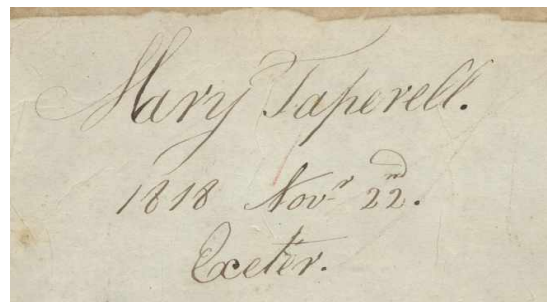 Mary Taperell.
1818 Novr 22nd.
Exeter.